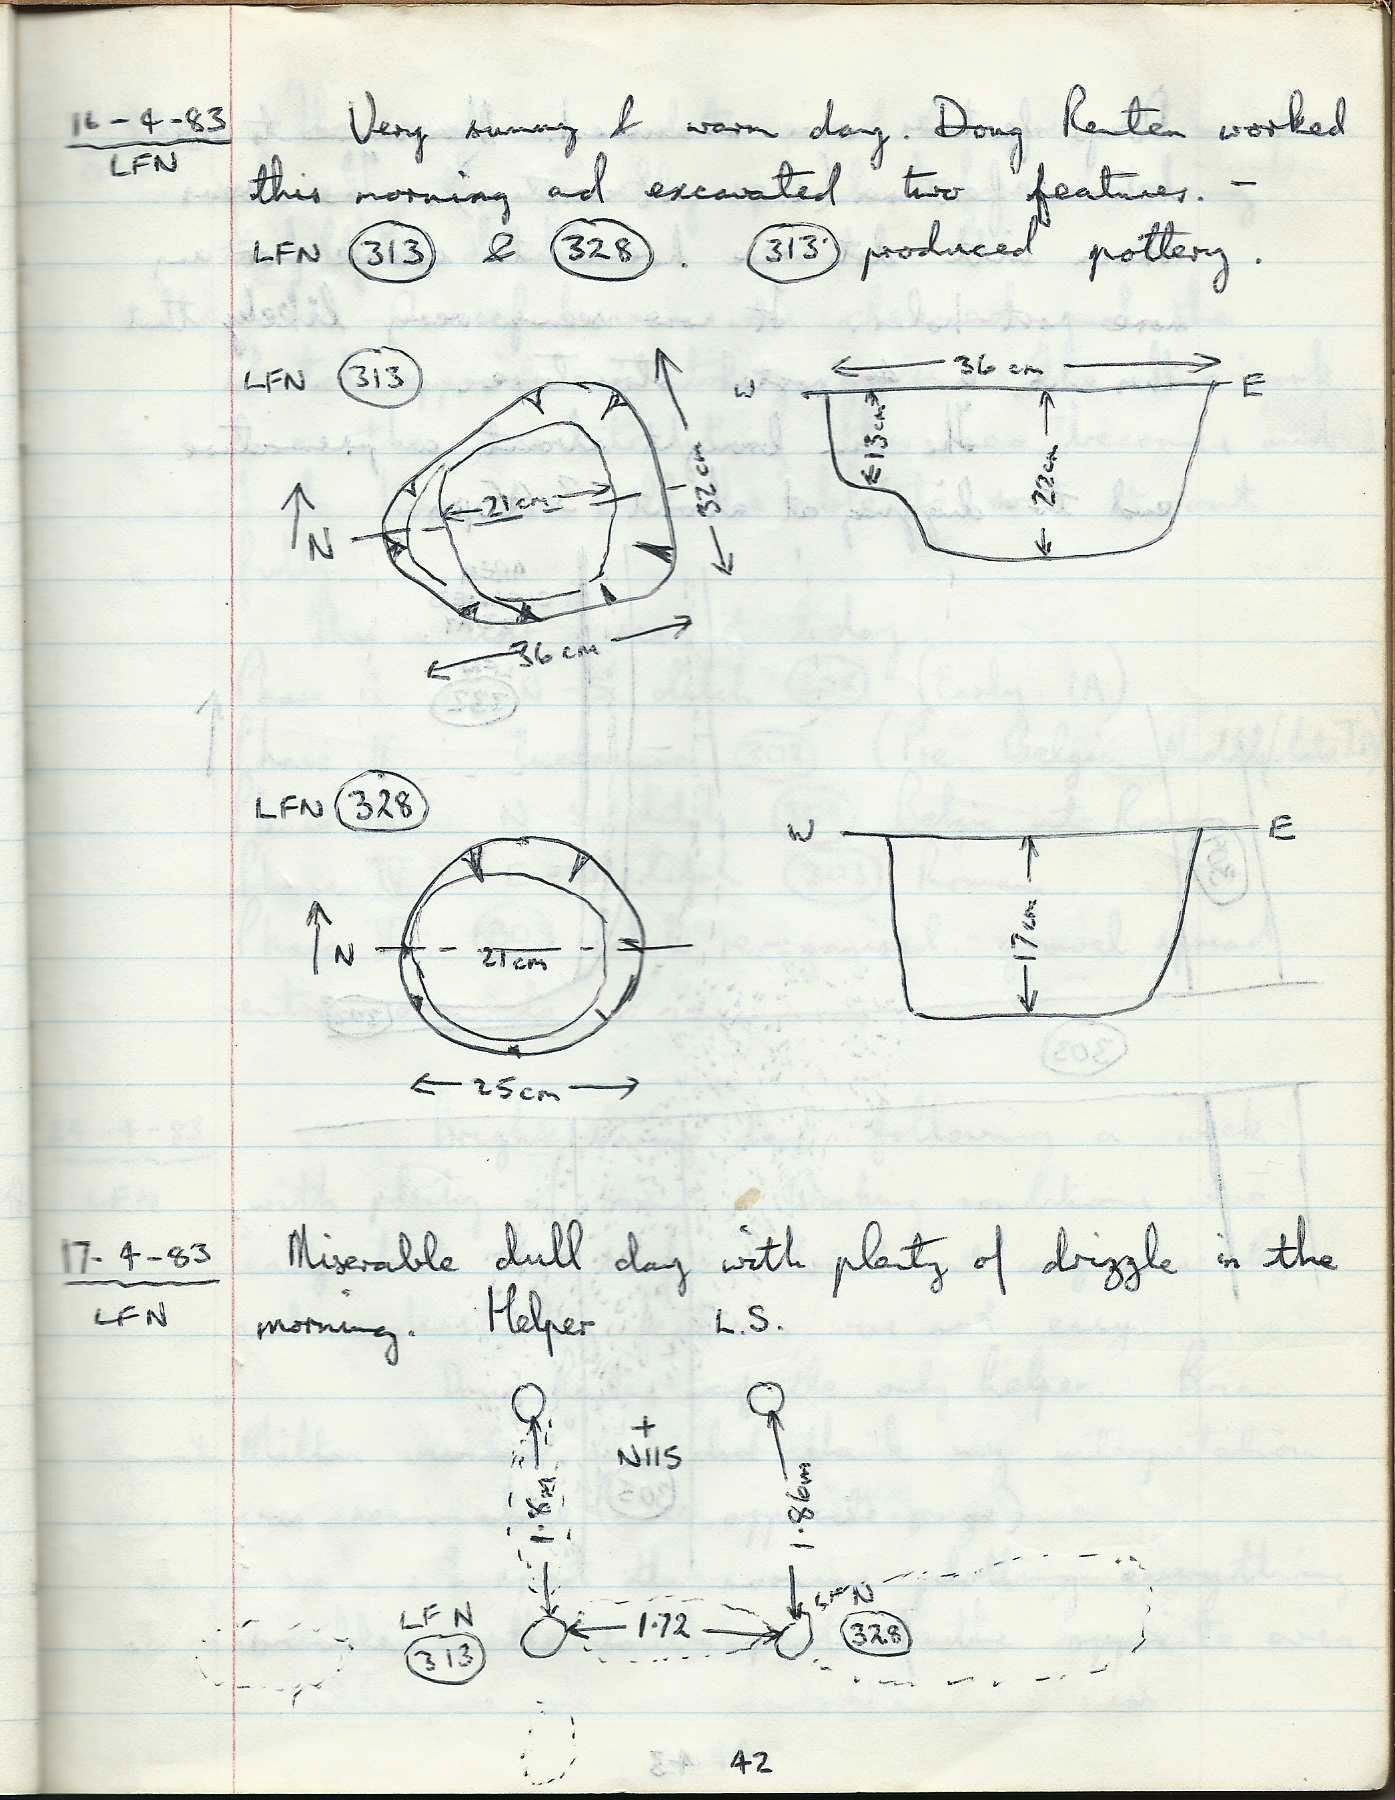 16-4-83
LFN
Very sunny & warm day. Doug Renten worked
this morning and excavated two features. -
LFN 313 & 328. 313 produced pottery.
LFN 313
N
21cm
32cm
36cm
W
36cm
E
13cm
22cm
LFN 328
N
21cm
25cm
W
E
17cm
17-4-83
LFN
Miserable dull day with plenty of drizzle in the
morning. Helper L.S.
+
N115
1.8m
1.86m
LFN
313
1.72
LFN
328
42